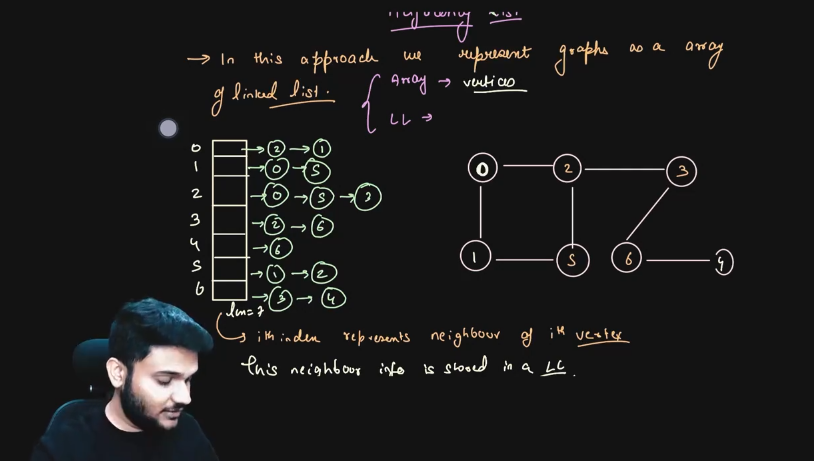 Adjacency List
→ In this approach we represent graphs as a array
of linked list.
Array → vertices
LL →
0 → 2 → 1
1 → 0 → 5
2 → 0 → 5 → 3
3 → 2 → 6
4 → 6
5 → 1 → 2
6 → 3 → 4
len=7
0 2 3
1 5 6 4
→ ith index represents neighbour of ith vertex
This neighbour info is stored in a LL.